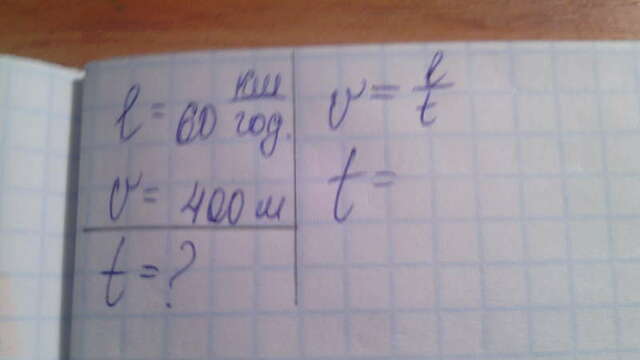 l = 60 км/год.
v = 400 м
t = ?
v = l/t
t =